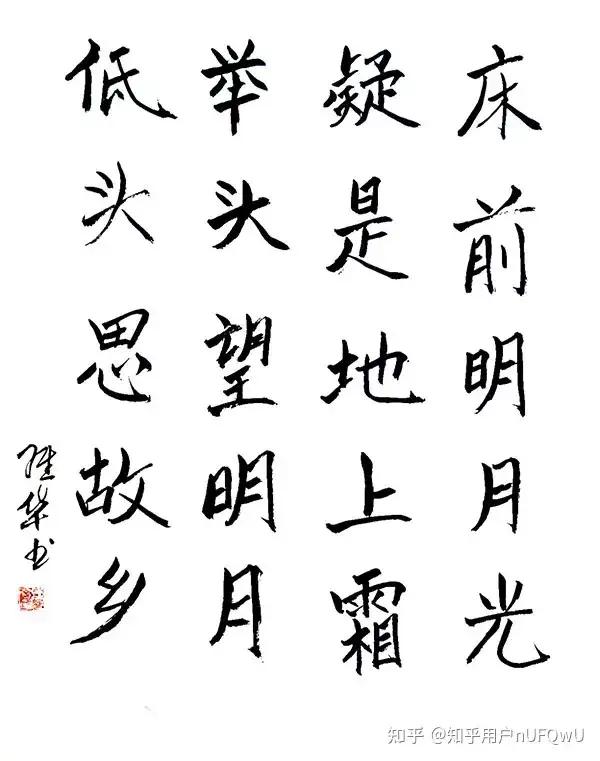 床前明月光
疑是地上霜
举头望明月
低头思故乡
华书
知乎 @知乎用户nUFQwU